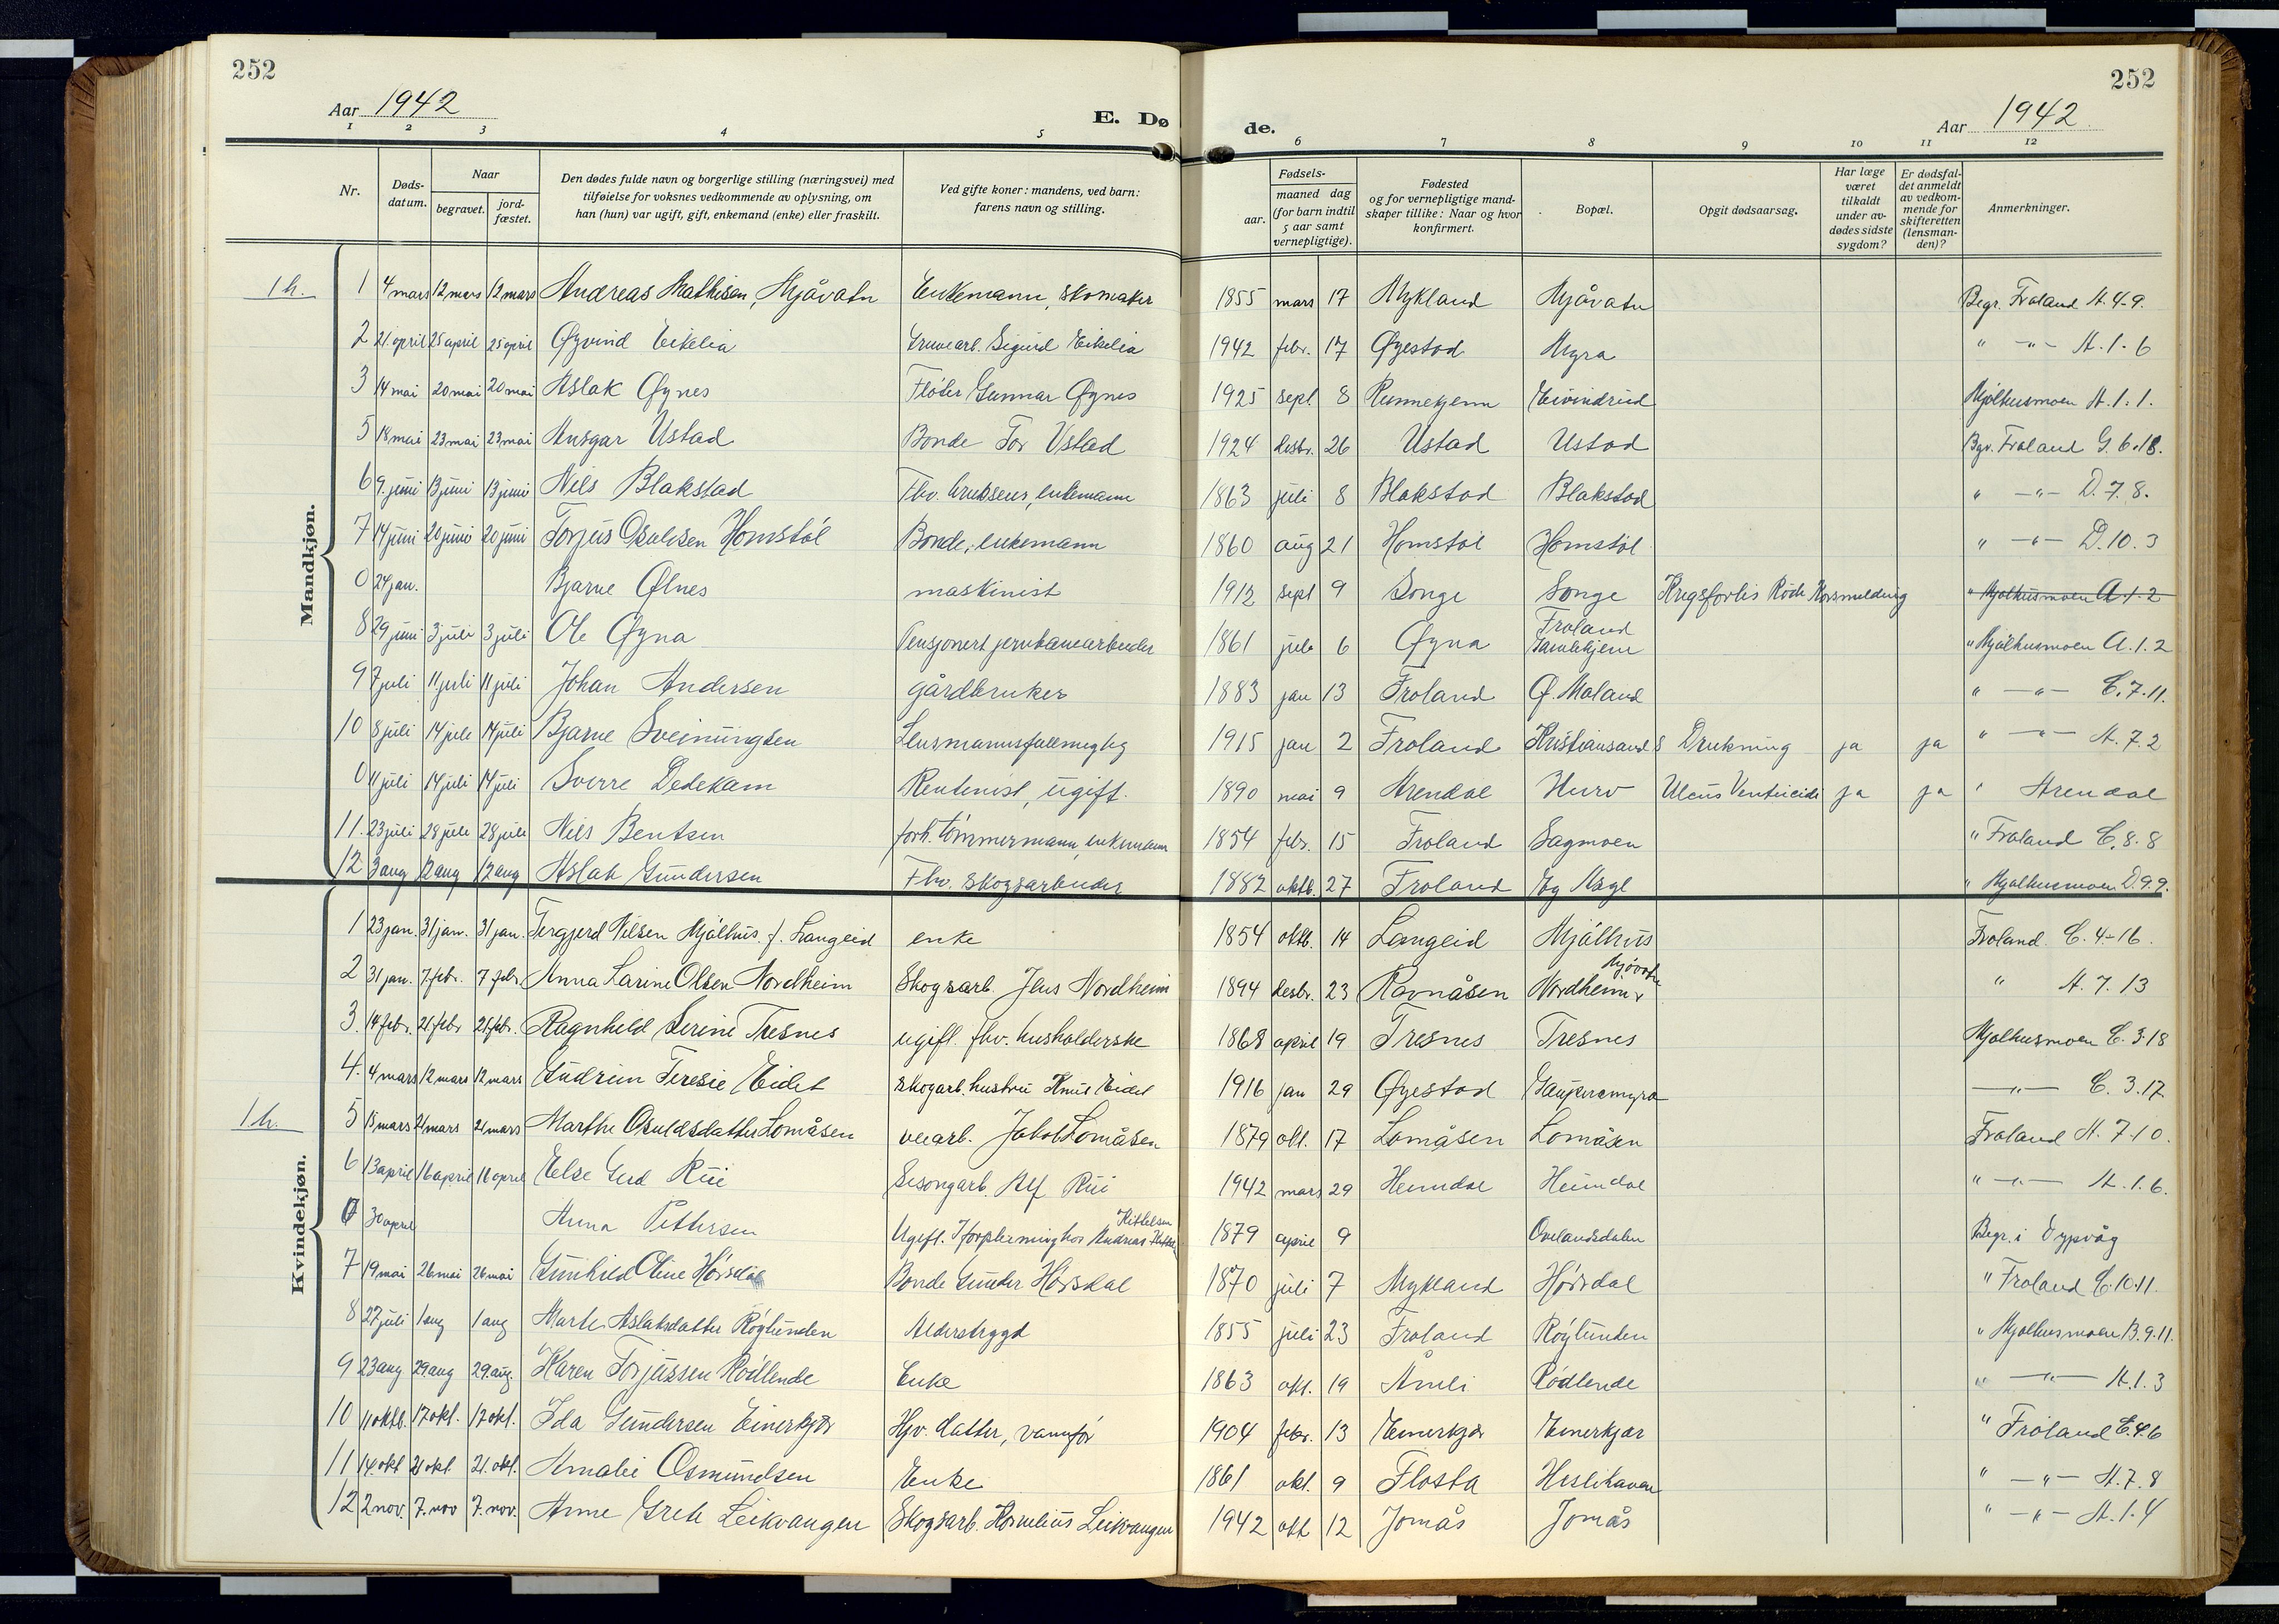 252
252
Aar 1942
E. Dø
de.
Aar 1942
1 2 3 4 5
6 7 8 9 10 11 12
Nr.
Døds-
datum.
Naar
begravet.
jord-
fæstet.
Den dødes fulde navn og borgerlige stilling (næringsvei) med
tilføielse for voksnes vedkommende av oplysning, om
han (hun) var ugift, gift, enkemand (enke) eller fraskilt.
Ved gifte koner: mandens, ved barn:
farens navn og stilling.
aar.
Fødsels-
maaned dag
(for barn indtil
5 aar samt
vernepligtige).
Fødested
og for vernepligtige mand-
skaper tillike: Naar og hvor
konfirmert.
Bopæl.
Opgit dødsaarsag.
Har læge
været
tilkaldt
under av-
dødes sidste
sygdom?
Er dødsfal-
det anmeldt
av vedkom-
mende for
skifteretten
(lensman-
den)?
Anmerkninger.
Mandkjøn.
1 h. 1 4 mars 12 mars 12 mars Andreas Mathisen, Mjåvatn Enkemann, skomaker 1855 mars 17 Mykland Mjåvatn Begr. Froland A. 4-9.
2 21. april 25 april 25 april Øyvind Eikelia Gruvearb. Sigurd Eikelia 1942 febr. 17 Øyestad Myra " -"- A. 1-6
3 14 mai 20 mai 20 mai Aslak Øynes Fløter Gunnar Øynes 1925 sept 8 Eivindrud Mjølhusmoen A. 1. 1.
5 18 mai 23 mai 23 mai Ansgar Ustad Bonde Tor Ustad 1924 desbr. 26 Ustad Ustad Bgr. Froland G. 6.18.
6 9. juni 13 juni 13 juni Nils Blakstad Fhv. enkemann 1863 juli 8 Blakstad Blakstad " -"- D. 7. 8.
7 14 juni 20 juni 20 juni Torjus Osuldsen Homstøl Bonde, enkemann 1860 aug 21 Homstøl Homstøl " -"- D. 10. 3
0 24 jan. Bjarne Ølnes maskinist 1912 sept 9 Songe Songe Krigsforlis Røde Korsmelding " Mjølhusmoen A. 1. 2
8 29 juni 3 juli 3 juli Ole Øyna Pensjonert jernbanearbeider 1861 juli 6 Øyna Froland " Mjølhusmoen A. 1. 2
9 7 juli 11 juli 11 juli Johan Andersen gårdbruker 1883 jan 13 Froland Ø. Moland " -"- C. 7. 11.
10 8 juli 14 juli 14 juli Bjarne Sveinungsen Lensmannsfullmegtig 1915 jan 2 Froland Kristiansand S Drukning ja ja " -"- A. 7. 2
0 11 juli 14 juli 14 juli Sverre Dedekam Rentenist, ugift. 1890 mai 9 Arendal Hurv Ulcus Ventricidi ja ja " Arendal
11. 23 juli 28 juli 28 juli Nils Bentsen forh. tømmermann, enkemann 1854 febr. 15 Froland Sagmoen " Froland C. 8. 8
12 3 aug 12 aug 12 aug Aslak Gundersen Fhv. skogsarbeider 1882 oktb. 27 Froland " Mjølhusmoen D. 9 9.
Kvindekjøn.
1 23 jan. 31 jan. 31 jan. Tergjerd Nilsen Mjålhus. f. Langeid enke 1854 oktb. 14 Langeid Mjålhus Froland. C. 4-16.
2 31 jan. 7 febr. 7 febr. Anna Karine Olsen Nordheim Skogsarb. Jens Nordheim 1894 desbr. 23 Ravnåsen Nordheim Mjåvatn " A. 7. 13
3. 14 febr. 21 febr 21 febr. Ragnhild Serine Tresnes ugift. fhv. husholderske 1868 april 19 Tresnes Tresnes Mjølhusmoen C. 3-18
4. 4 mars 12 mars 12 mars Gudrun Teresie Eidet skogarb. hustru Knut Eidet 1916 jan 29 Øyestad Gaupemyra -"- C. 3. 17.
1 h. 5 15 mars 21 mars 21 mars Marthe Osuldsdatter Lomåsen veiarb. Jakob Lomåsen 1879 okt. 17 Lomåsen Lomåsen Froland A. 7-10.
6 13 april 16 april 16 april Else Gerd Rui Sesongarb. Alf Rui 1942 mars 29 Heimdal Heimdal " -"- A. 1. 6.
0 30 april Anna Pettersen Ugift. I forpleining hos Andreas Kittelsen 1879 april 9 Ovelandsdalen Begr. i Dypvåg
7 19 mai 26 mai 26 mai Gunhild Oline Hørsdal Bonde Gunder Hørsdal 1870 juli 7 Mykland Hørsdal " Froland C. 10. 11.
8 27 juli 1 aug 1 aug Marte Aslaksdatter Røylunden Alderstrygd 1855 juli 23 Froland Røylunden " Mjølhusmoen B. 9. 11.
9 23 aug 29. aug 29. aug. Karen Torjussen Rødlende Enke 1863 okt. 19 Åmli Rødlende " -"- A. 1. 3
10 11 oktb. 17 okt. 17 okt. Ida Gundersen Einerkjær Hjv. datter, vanfør 1904 febr. 13 Einerkjær Einerkjær " Froland C. 4. 6
11 14. okt 21 okt. 21. okt. Amalie Osmundsen Enke 1861 okt. 9 Flosta " -"- A. 7. 8
12 2 nov. 7. nov 7. nov. Anne Grete Leikvangen Skogsarb. Kornelius Leikvangen 1942 okt 12 Jomås Jomås " -"- A. 1. 4